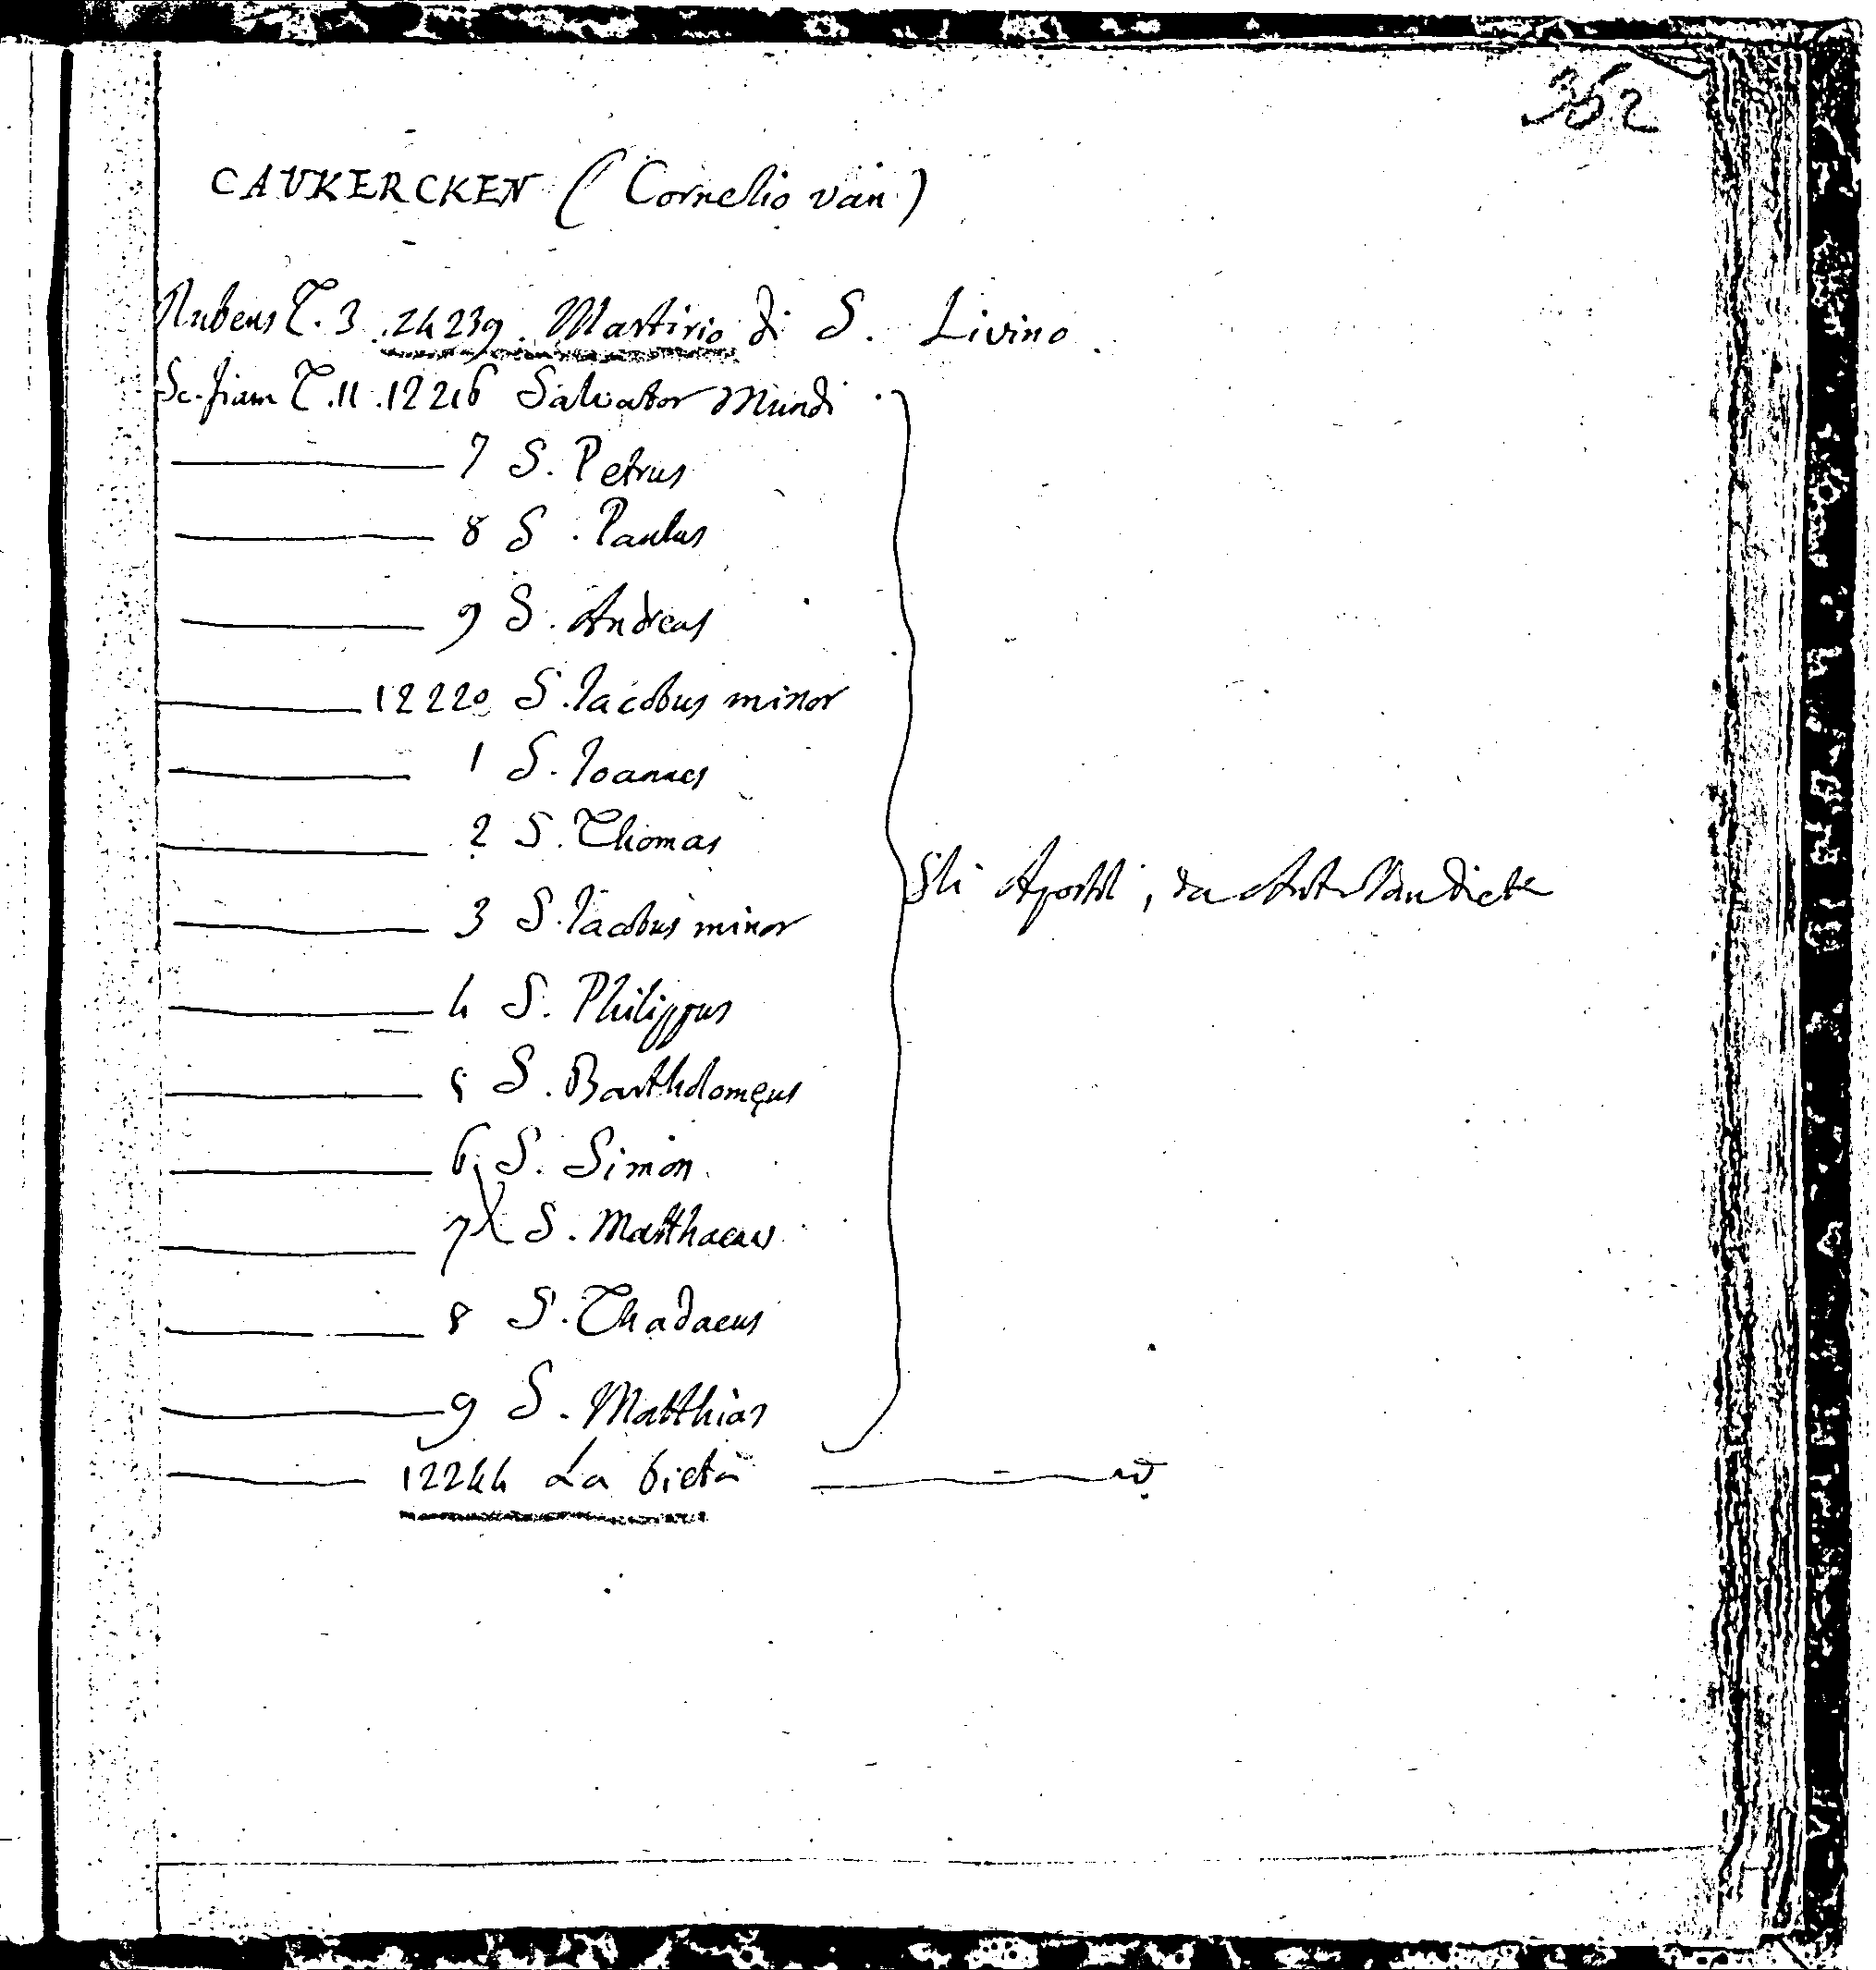 362
CAUKERCKEN (Cornelio van)
Rubens T. 3 . 24239 . Martirio di S. Livino
Sc. fiam T. 11 . 12216 Salvator Mundi
7 S. Petrus
8 S. Paulus
9 S. Andreas
12220 S. Iacobus minor
1 S. Ioannes
2 S. Thomas
3 S. Iacobus minor
Gli Apostoli, da Ant Van Dick
4 S. Philippus
5 S. Bartholomęus
6 S. Simon
7 S. Matthaeus
8 S. Thadaeus
9 S. Matthias
12244 La Pietà